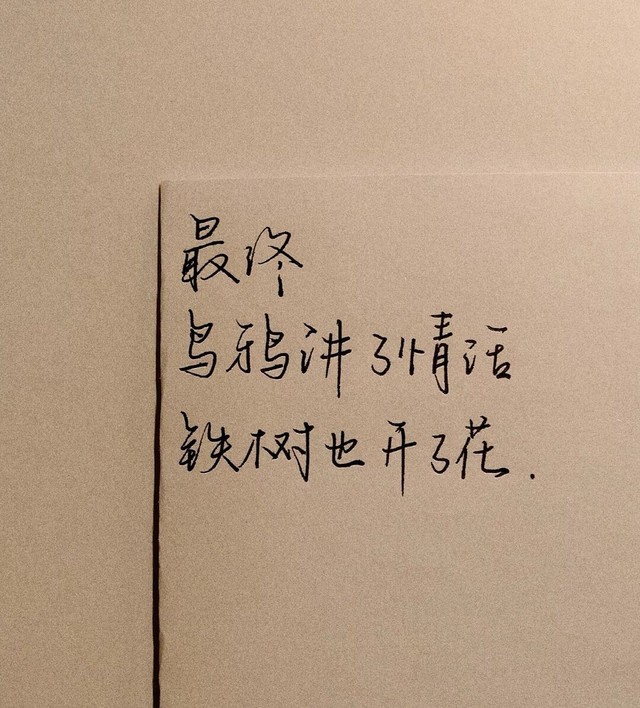 最终
乌鸦讲了情话
铁树也开了花.